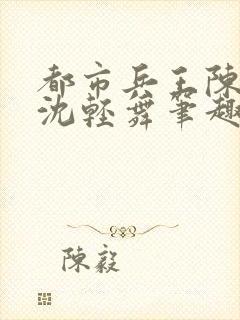 都市兵王陳
沈輕舞筆趣
陳毅